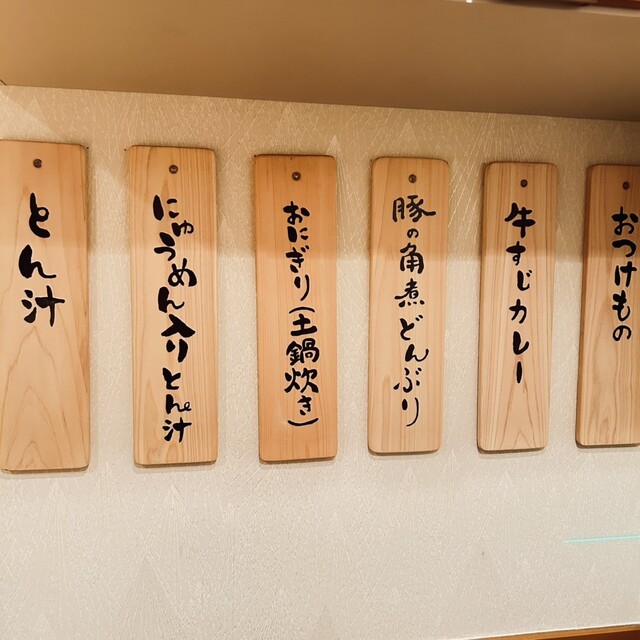 おつけもの
牛すじカレー
豚の角煮どんぶり
おにぎり(土鍋炊き)
にゅうめん入りとん汁
とん汁